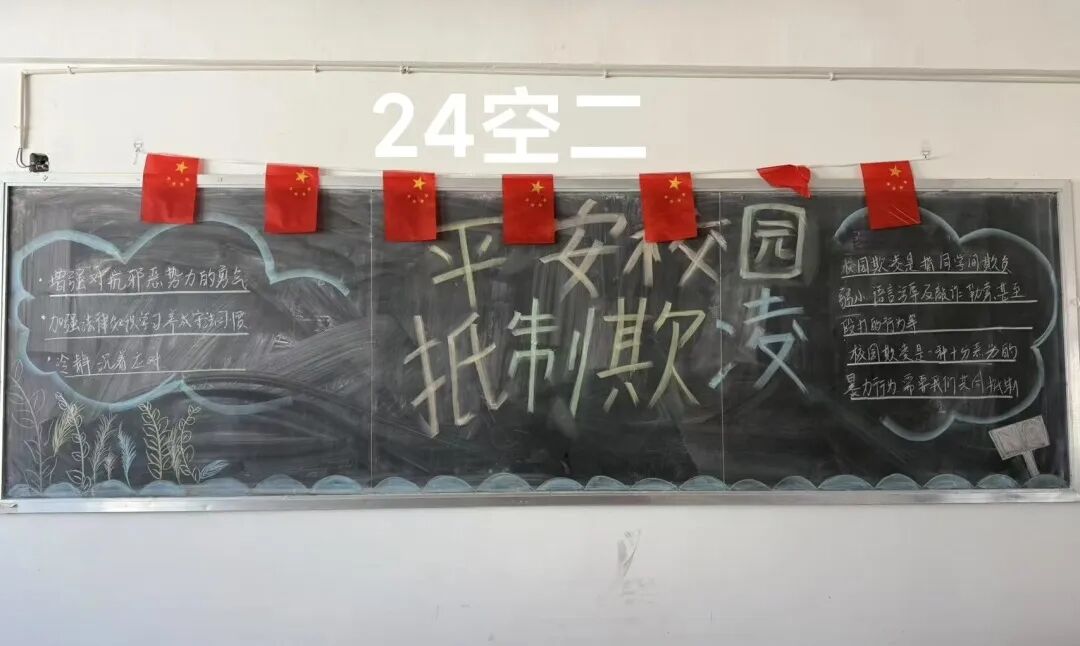 24空二
平安校园
抵制欺凌
·增强对抗邪恶势力的勇气
·加强法律知识学习养成守法习惯
·冷静沉着应对
校园欺凌是指同学间欺负
弱小语言污辱及敲诈勒索甚至
殴打的行为等
校园欺凌是一种十分恶劣的
暴力行为需要我们共同抵制